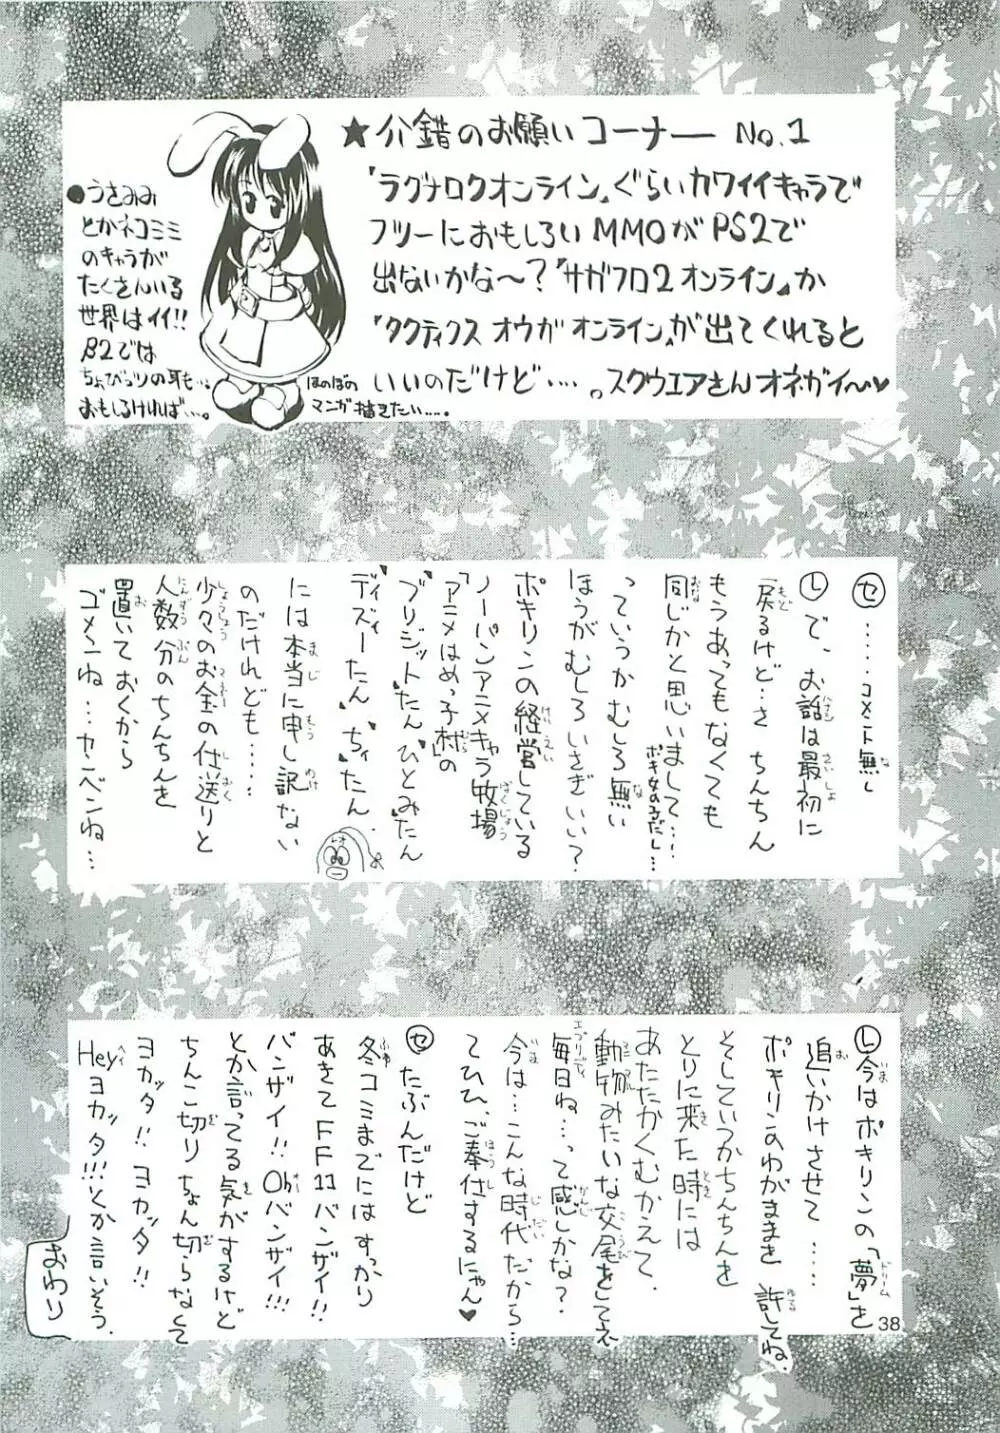 ★介錯のお願いコーナー No.1
『ラグナロクオンライン』ぐらいカワイイキャラで
フツーにおもしろいMMOがPS2で
出ないかな〜?『サガフロ2オンライン』か
『タクティクスオウガオンライン』が出てくれると
いいのだけど・・・・。スクウエアさんオネガイ〜♥
●うさみみ
とかネコミミ
のキャラが
たくさんいる
世界はイイ!!
β2では
ちょびっツの耳も…。
おもしろければ…。
ほのぼの
マンガ描きたい……。
セ ……コメント無し
レ で、お話は最初に
戻るけど…さ ちんちん
もうあってもなくても
同じかと思いまして…
ポギ女の子だし…
っていうかむしろ無い
ほうがむしろいさぎいい?
ポキリンの経営している
ノーパンアニメキャラ牧場
「アニメはめっ子村」の
ブリジットたん、ひとみたん
ディズィーたん、ちぃたん、
には本当に申し訳ない
のだけれども……
少々のお金の仕送りと
人数分のちんちんを
置いておくから
ゴメンね…カンベンね…
レ 今はポキリンの「夢」を
追いかけさせて……
ポキリンのわがままを 許してね。
そしていつかちんちんを
とりに来た時には
あたたかくむかえて、
動物みたいな交尾をしてぇ
毎日ね…って感じかな?
今は…こんな時代だから…
てひひ、ご奉仕するにゃん♥
セ たぶんだけど
冬コミまでにはすっかり
あきてFF11バンザイ!!
バンザイ!! Ohバンザイ!!!
とか言ってる気がするけど
ちんこ切り ちょん切らなくて
ヨカッタ!! ヨカッタ!!
Heyヨカッタ!!!とか言いそう。
おわり
38